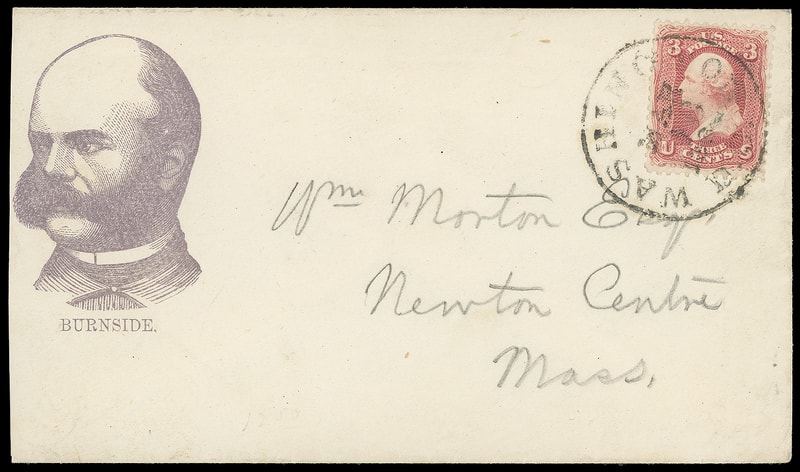 BURNSIDE.
3 U.S. 3
POSTAGE
U THREE S
CENTS
WASHINGTON
Wm Morton Esq,
Newton Centre
Mass.